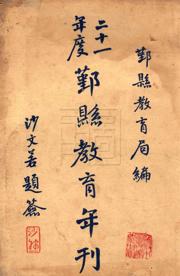 鄞縣教育局編
二十一年度鄞縣教育年刊
沙文若題簽